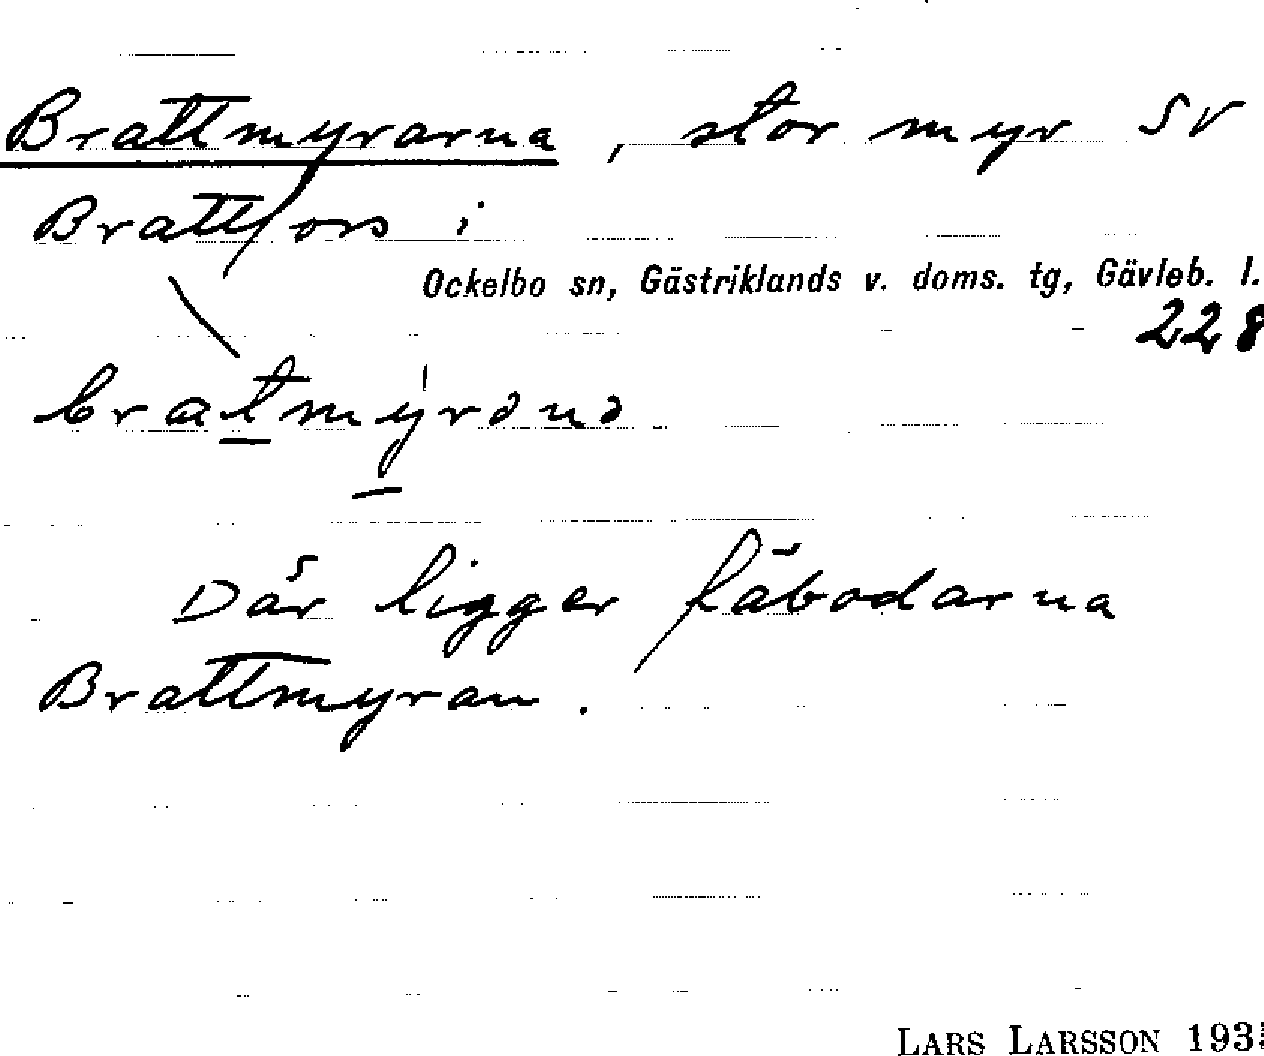 Brattmyrarna, stor myr SV
Brattfors i
Ockelbo sn, Gästriklands v. doms. tg, Gävleb. l.
228
bratmýrəna
Där ligger fäbodarna
Brattmyran.
LARS LARSSON 193